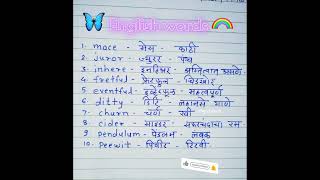 English words
1. mace - मेस - काठी
2. juror - ज्युरर - पंच
3. inhere - इनहिअर - अस्तित्वात असणे
4. fretful - फ्रेटफूल - चिडखोर
5. eventful - इव्हेंटफूल - महत्वपूर्ण
6. ditty - डिटि - लहानसे गाणे
7. churn - चर्न - रवी
8. cider - साइडर - सफरचंदाचा रस
9 pendulum - पेंडलम - लंबक
10. peewit - पिविट - टिटवी